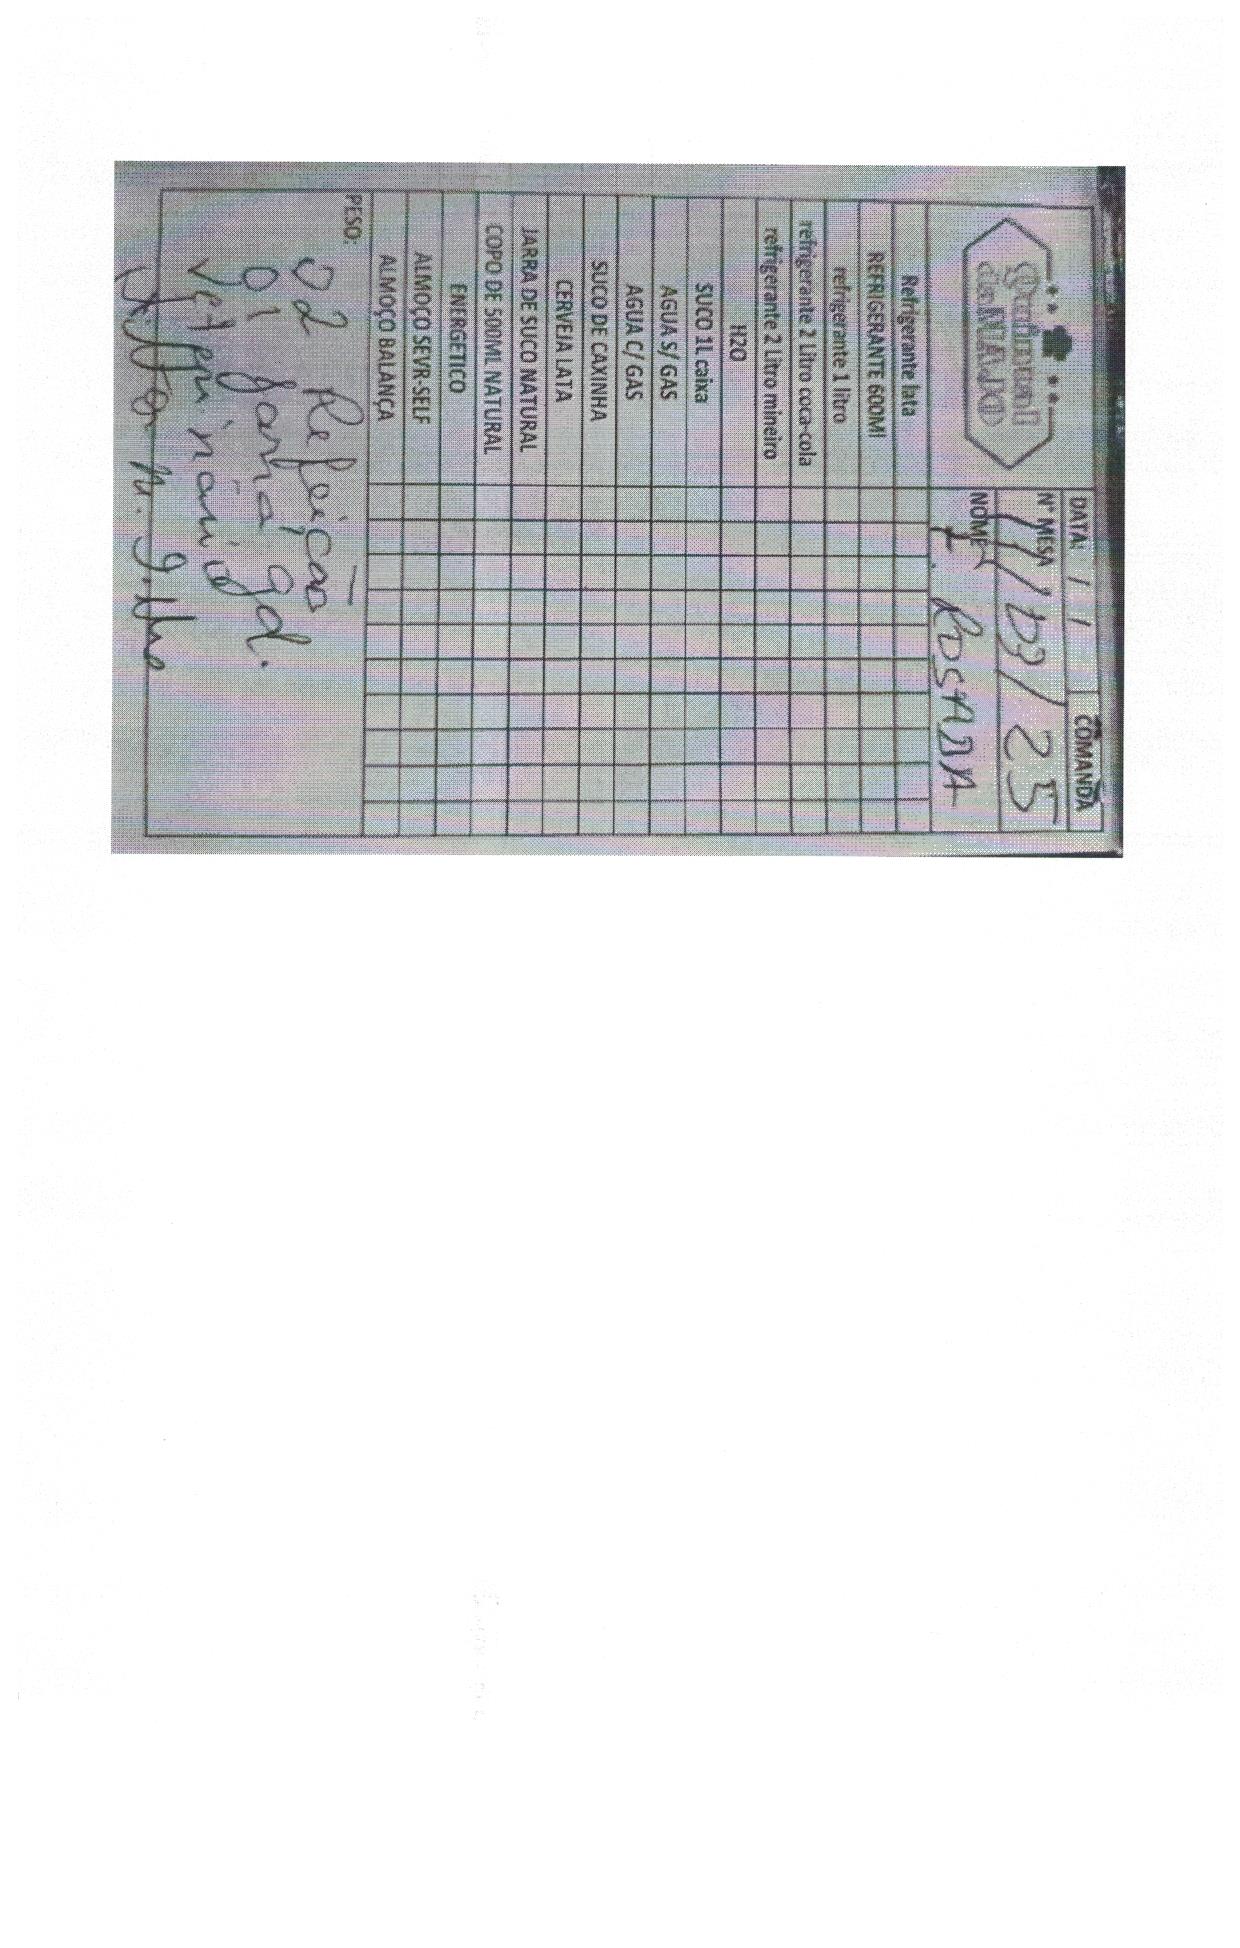 Quintal
da MAJO
DATA: / /
COMANDA
N° MESA
11/03/25
NOME
F. ROSADA
Refrigerante lata
REFRIGERANTE 600Ml
refrigerante 1 litro
refrigerante 2 Litro coca-cola
refrigerante 2 Litro mineiro
H2O
SUCO 1L caixa
AGUA S/ GAS
AGUA C/ GAS
SUCO DE CAXINHA
CERVEJA LATA
JARRA DE SUCO NATURAL
COPO DE 500ML NATURAL
ENERGETICO
ALMOÇO SEVR-SELF
ALMOÇO BALANÇA
PESO:
02 Refeição
01